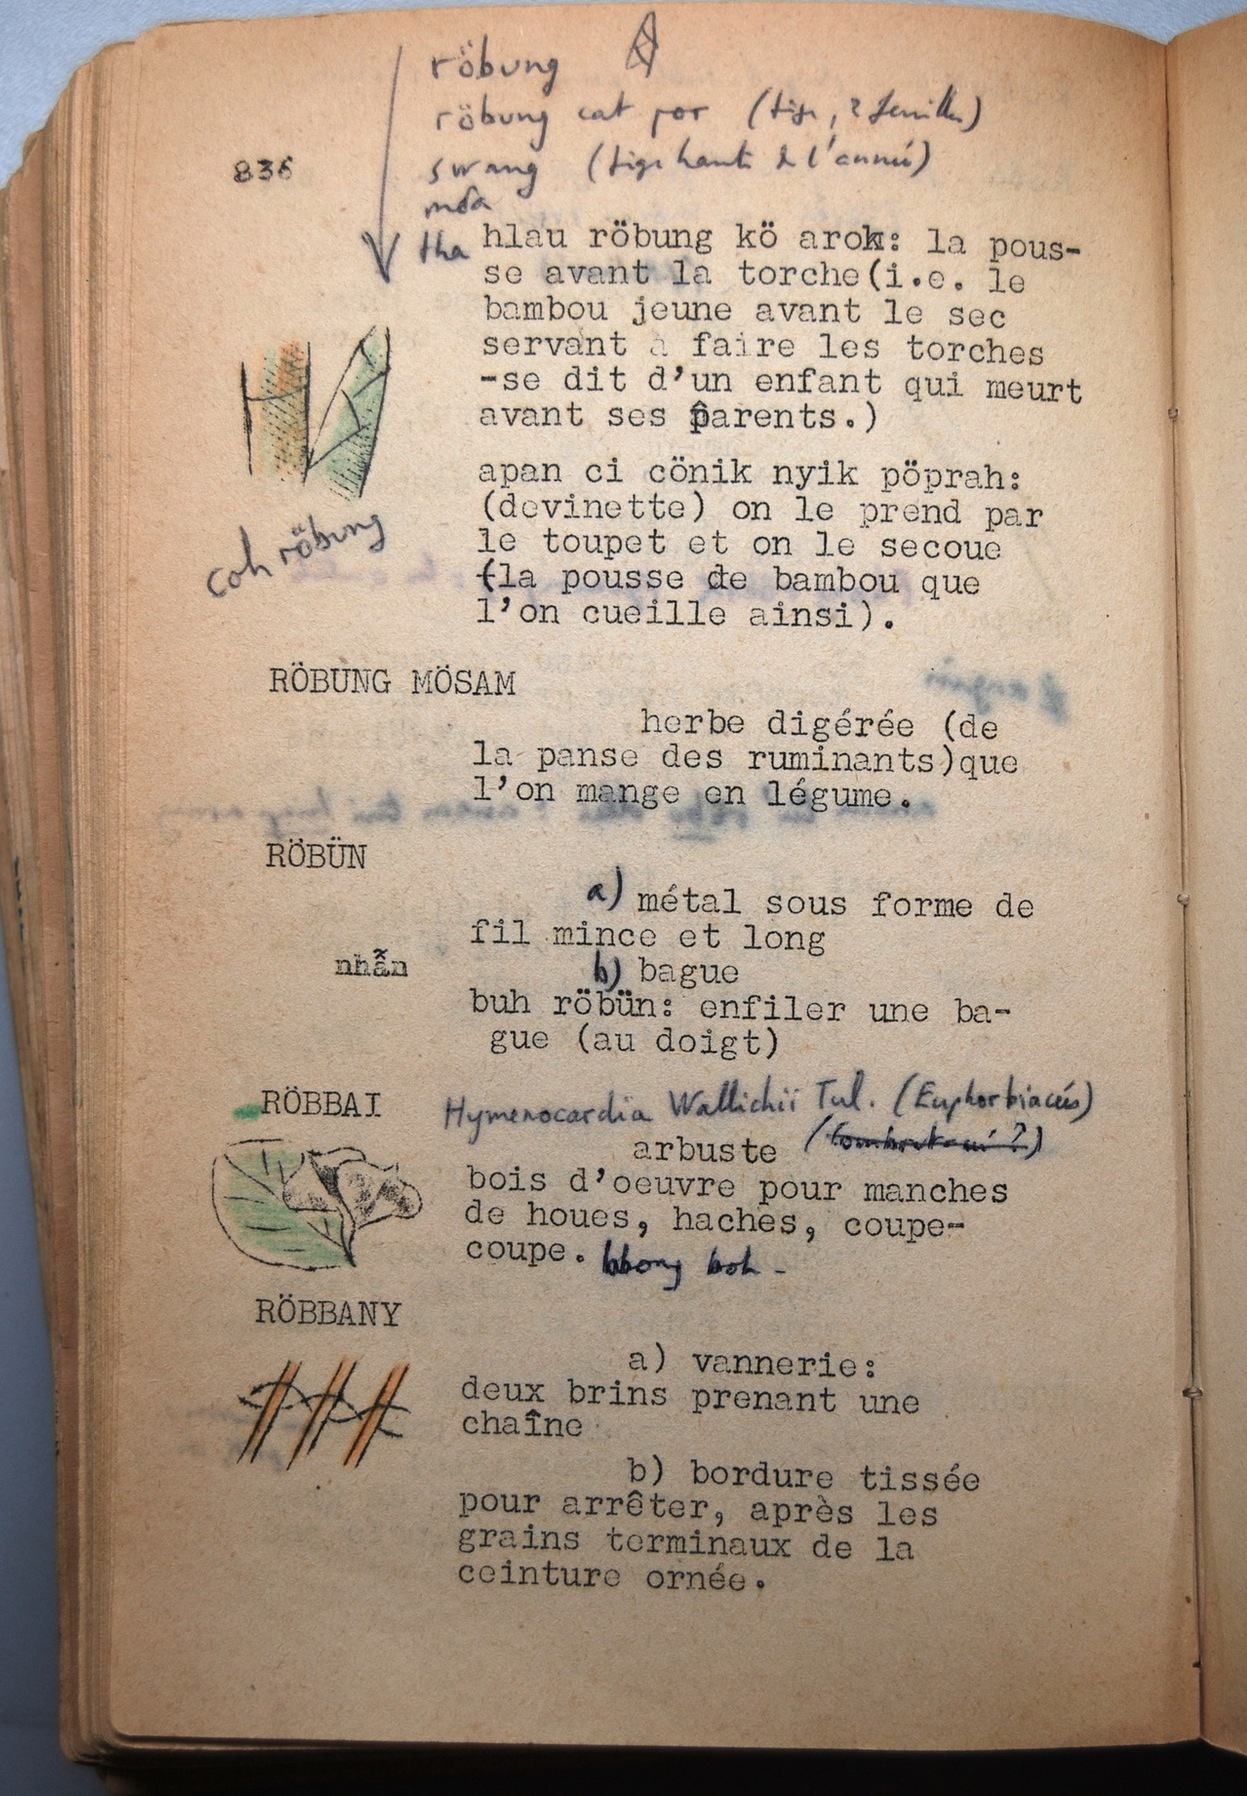 röbung
röbung cat por (tige, 2 feuilles)
835
swang (tige haute de l'année)
möa
tha hlau röbung kö arok: la pous-
se avant la torche(i.e. le
bambou jeune avant le sec
servant à faire les torches
-se dit d'un enfant qui meurt
avant ses parents.)
apan ci cönik nyik pöprah:
(devinette) on le prend par
le toupet et on le secoue
(la pousse de bambou que
l'on cueille ainsi).
coh röbung
RÖBUNG MÖSAM
herbe digérée (de
la panse des ruminants)que
l'on mange en légume.
RÖBÜN
a) métal sous forme de
fil mince et long
nhẫn
b) bague
buh röbün: enfiler une ba-
gue (au doigt)
RÖBBAI Hymenocardia Wallichii Tul. (Euphorbiacées)
arbuste
bois d'oeuvre pour manches
de houes, haches, coupe-
coupe.
RÖBBANY
a) vannerie:
deux brins prenant une
chaîne
b) bordure tissée
pour arrêter, après les
grains terminaux de la
ceinture ornée.